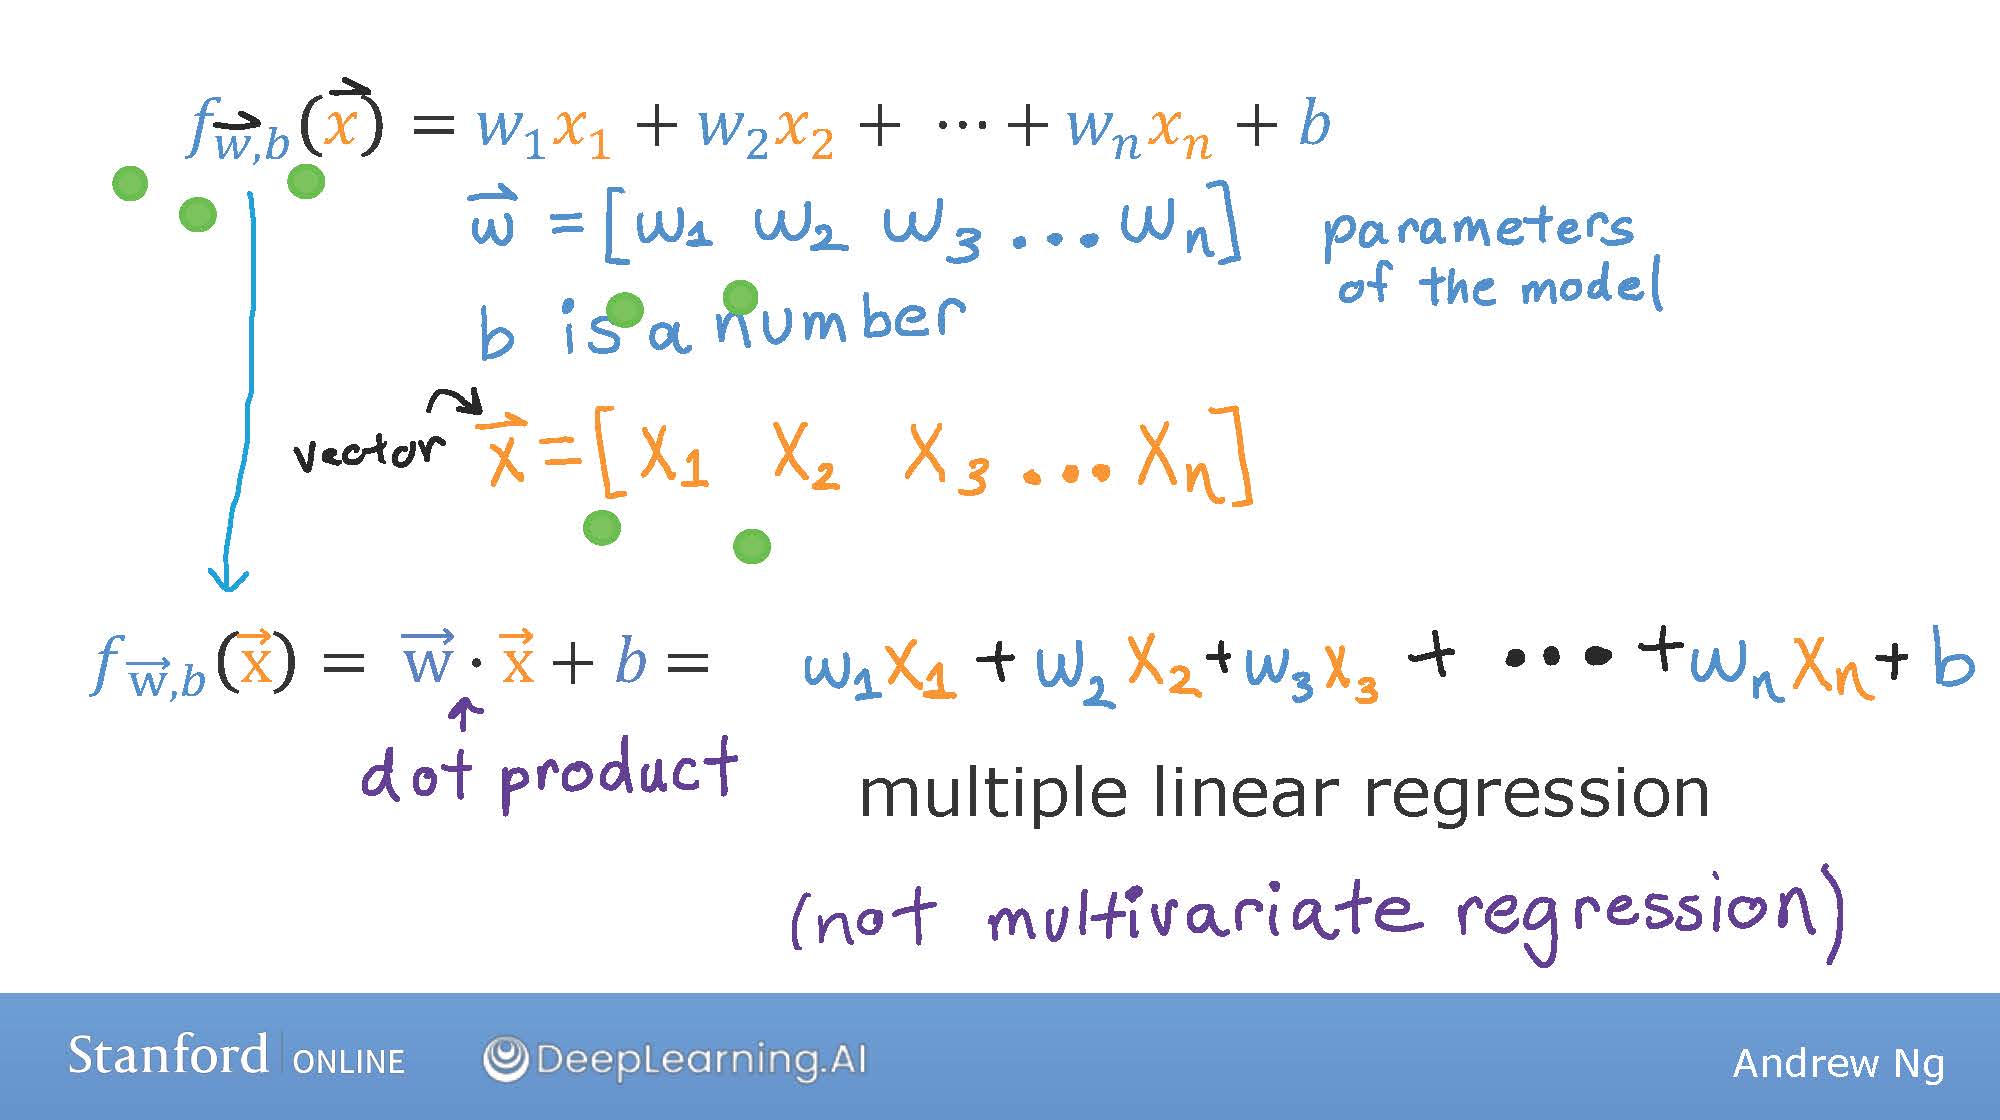 f_{\vec{w},b}(\vec{x}) = w₁x₁ + w₂x₂ + ⋯ + wₙxₙ + b
\vec{w} = [w₁ w₂ w₃ ... wₙ]
parameters
of the model
b is a number
vector
\vec{x} = [x₁ x₂ x₃ ... xₙ]
f_{\vec{w},b}(\vec{x}) = \vec{w} · \vec{x} + b = w₁x₁ + w₂x₂ + w₃x₃ + ... + wₙxₙ + b
dot product
multiple linear regression
(not multivariate regression)
Stanford ONLINE DeepLearning.AI Andrew Ng